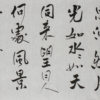 光如水如天
同来望月人
何處風景